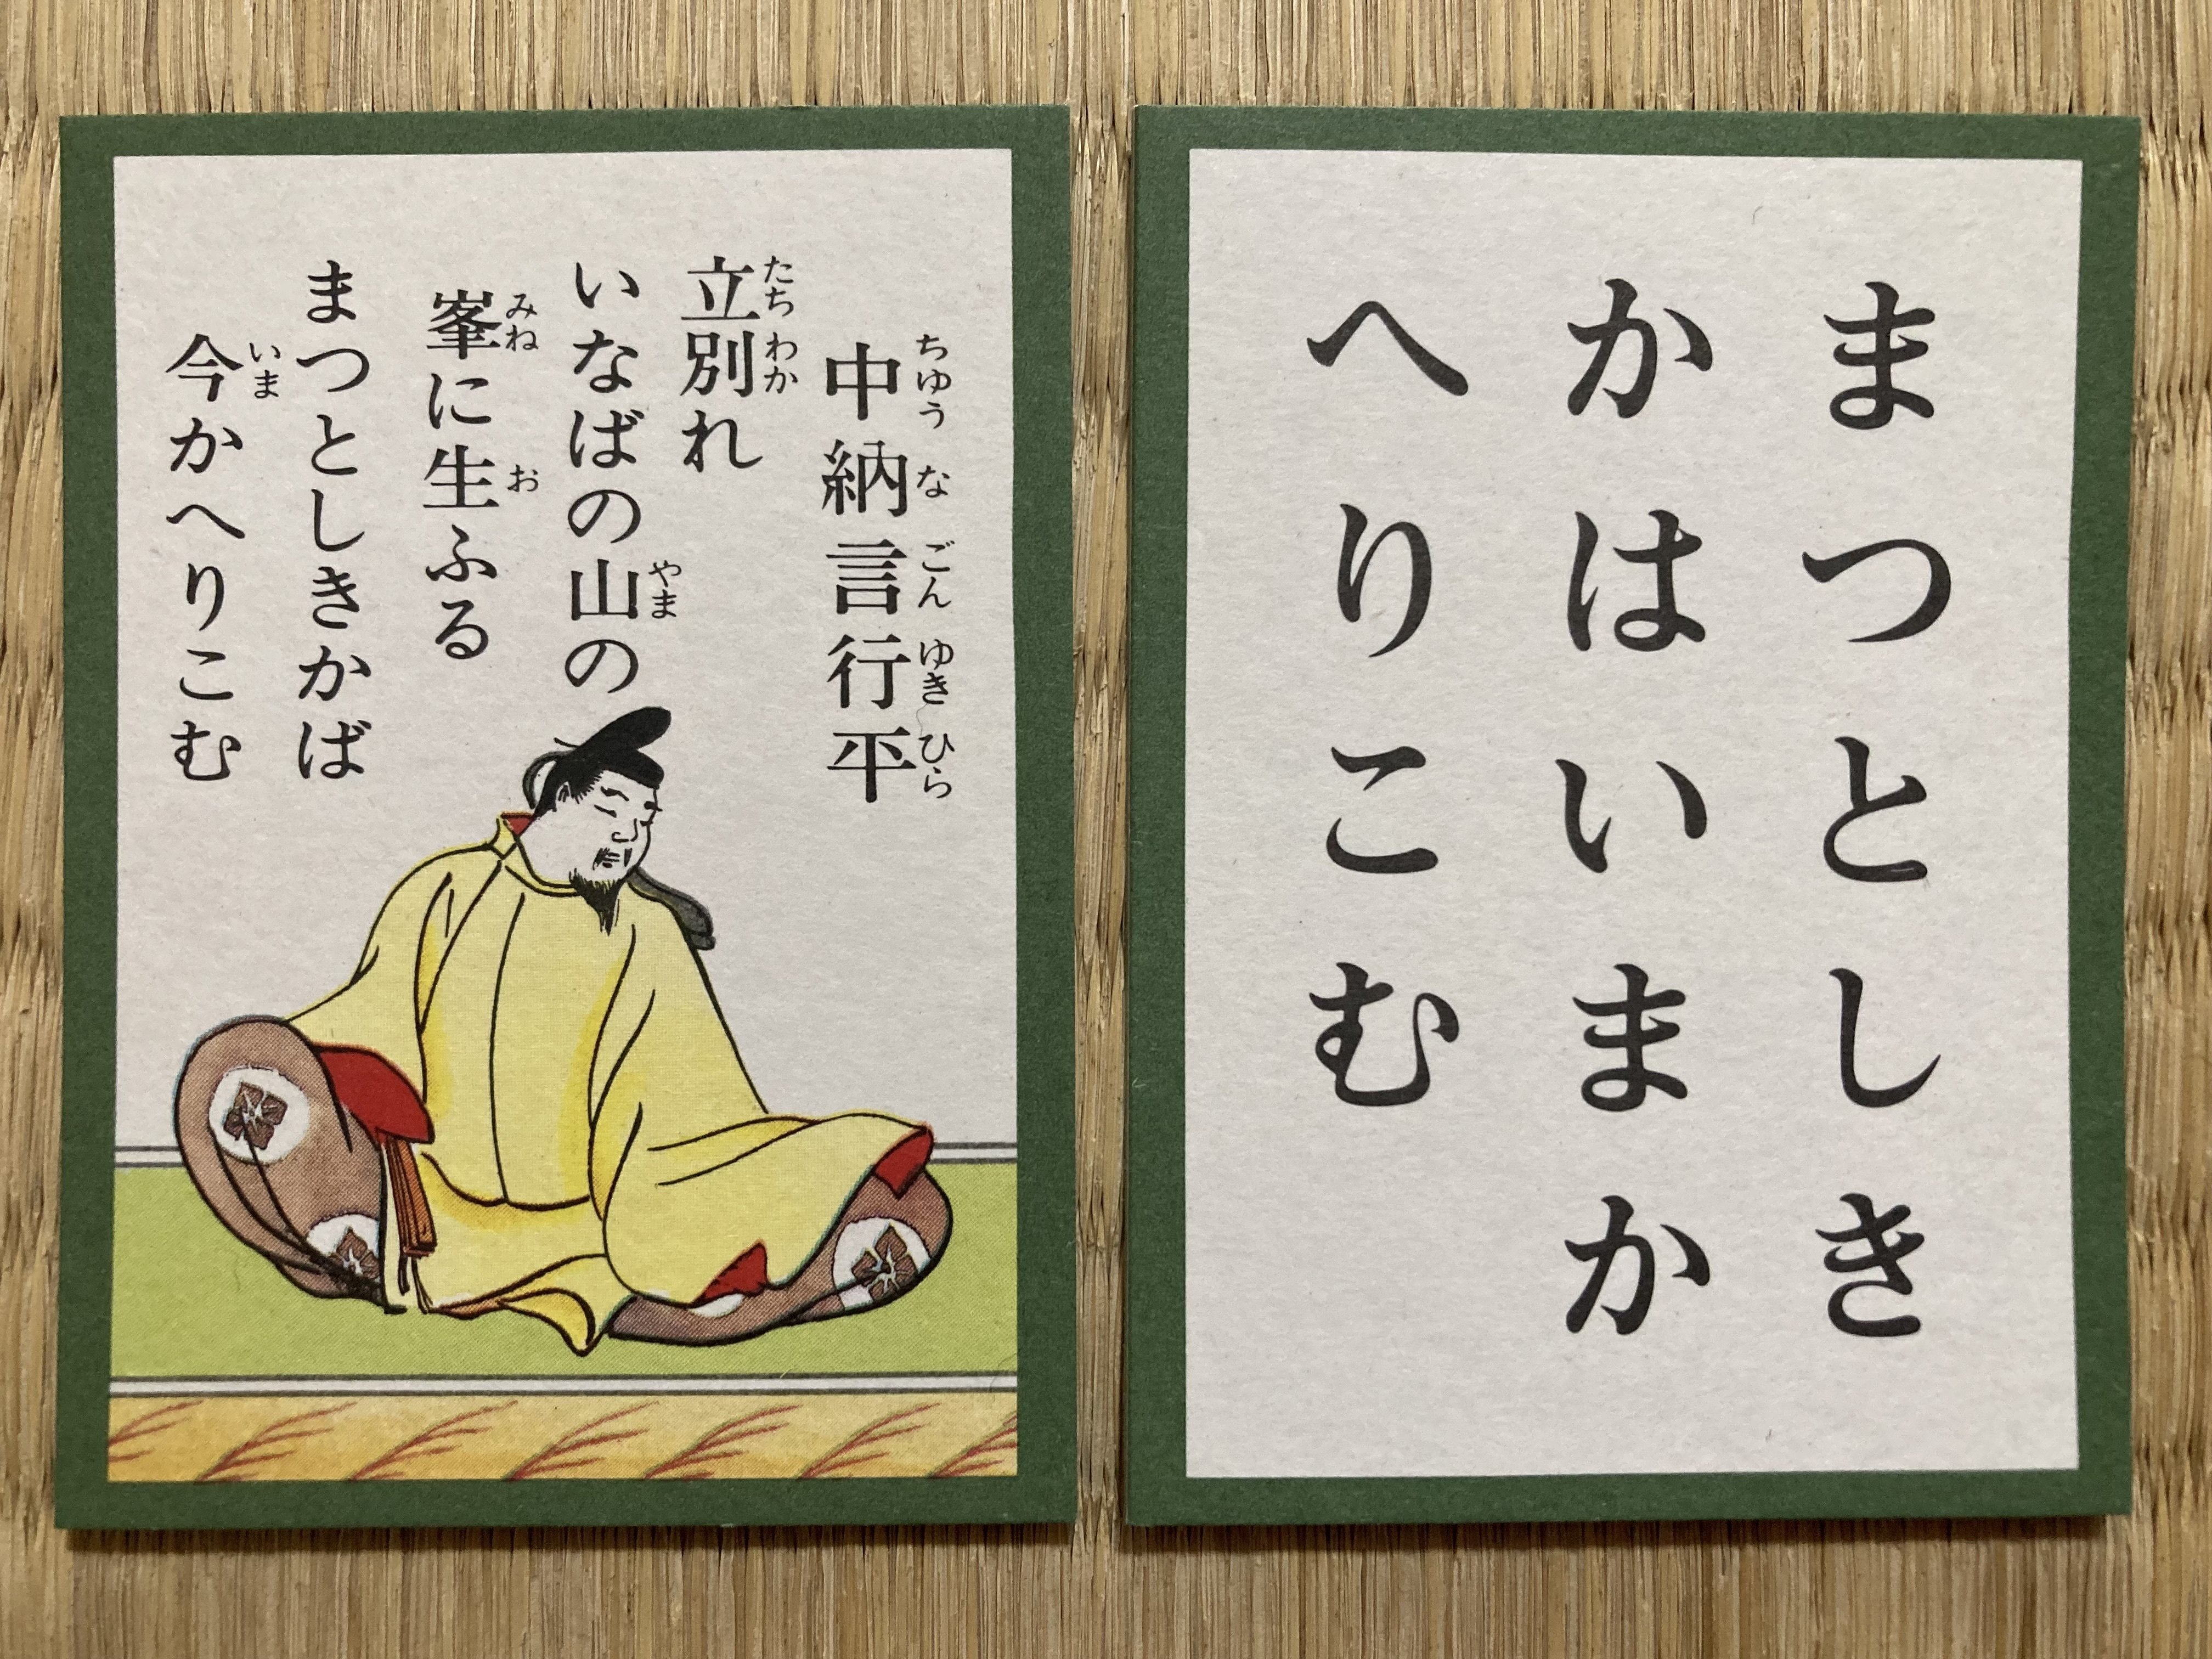 中納言行平
ちゆうなごんゆきひら
立別れ
たちわか
いなばの山の
やま
峯に生ふる
みねお
まつとしきかば
今かへりこむ
いま
まつとしき
かはいまか
へりこむ